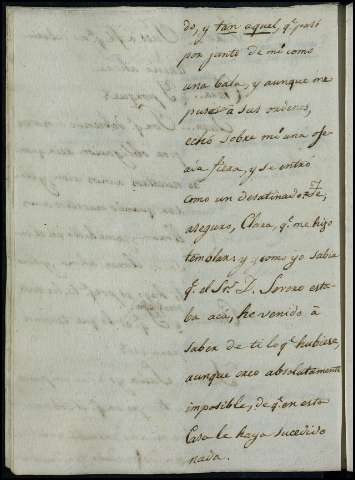 do, y tan aquel, q.e pasó
por junto de mí como
una bala, y aunque me
puse à sus ordenes,
echó sobre mí una oje
ada fiera, y se entró
como un desatinado: te
aseguro, Clara, q.e me hizo
temblar; y como yo sabía
q.e el S.or D. Severo esta
ba acá, he venido à
saber de ti lo q.e hubiese,
aunque creo absolutamente
imposible, de q.e en esta
Casa le haya sucedido
nada.